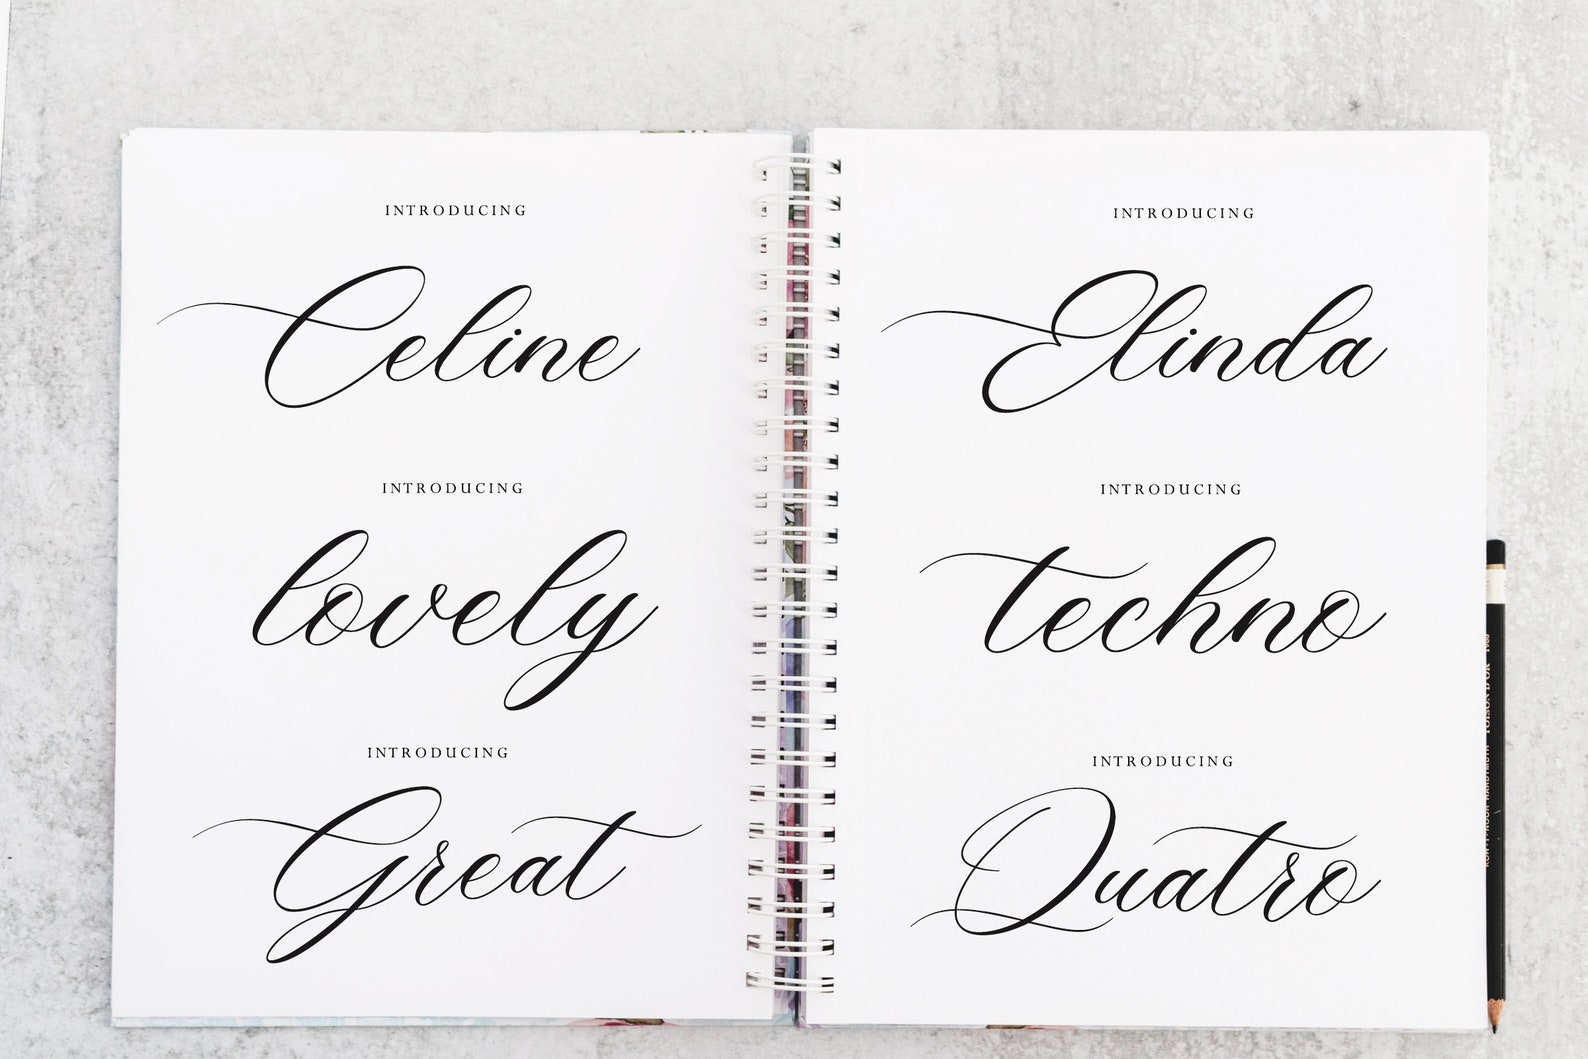 INTRODUCING
Celine
INTRODUCING
lovely
INTRODUCING
Great
INTRODUCING
Elinda
INTRODUCING
techno
INTRODUCING
Quatro
KOH-I-NOOR HARDTMUTH TOISON D'OR 1900